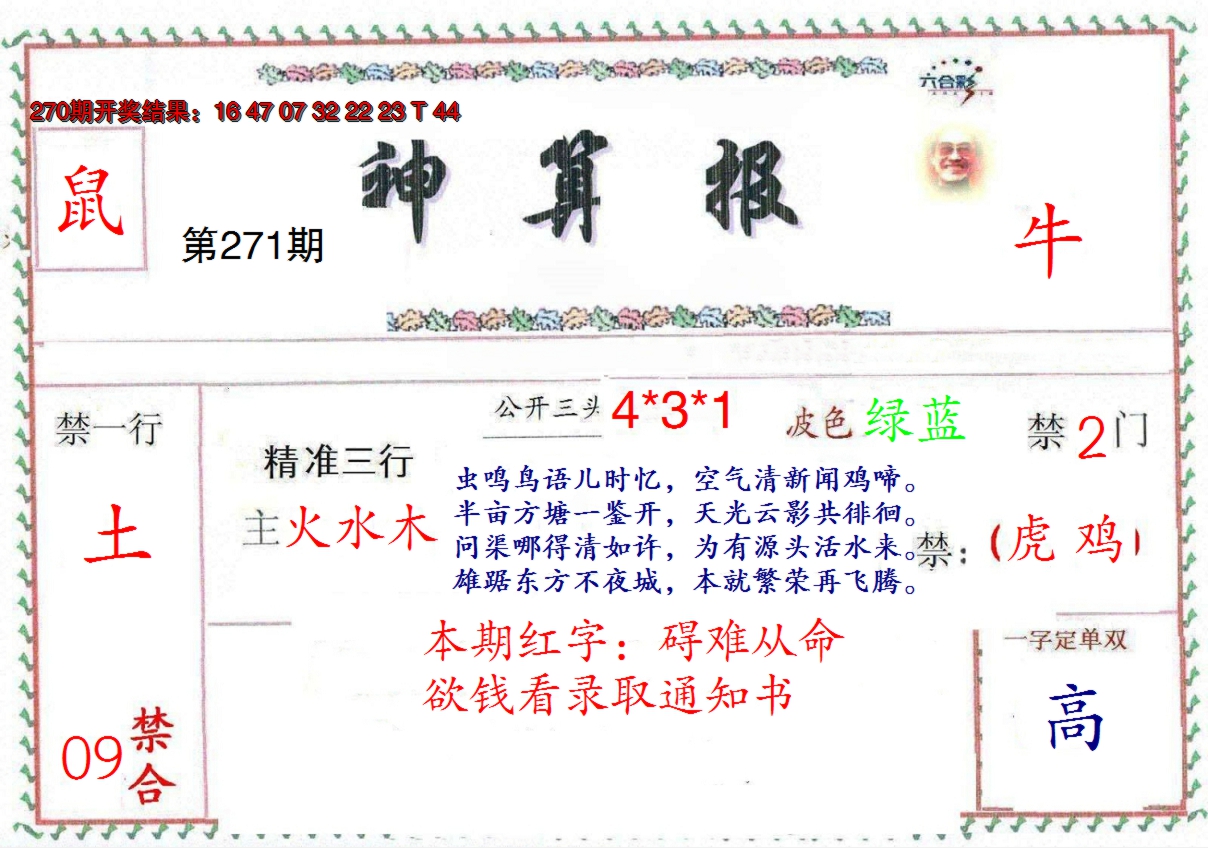 六合彩
270期开奖结果：16 47 07 32 22 23 T 44
鼠
神算报
第271期
牛
禁一行
土
09
禁合
精准三行
主火水木
公开三头 4*3*1
波色 绿蓝
虫鸣鸟语儿时忆，空气清新闻鸡啼。
半亩方塘一鉴开，天光云影共徘徊。
问渠哪得清如许，为有源头活水来。
雄踞东方不夜城，本就繁荣再飞腾。
禁2门
禁：（虎 鸡）
本期红字：碍难从命
欲钱看录取通知书
一字定单双
高